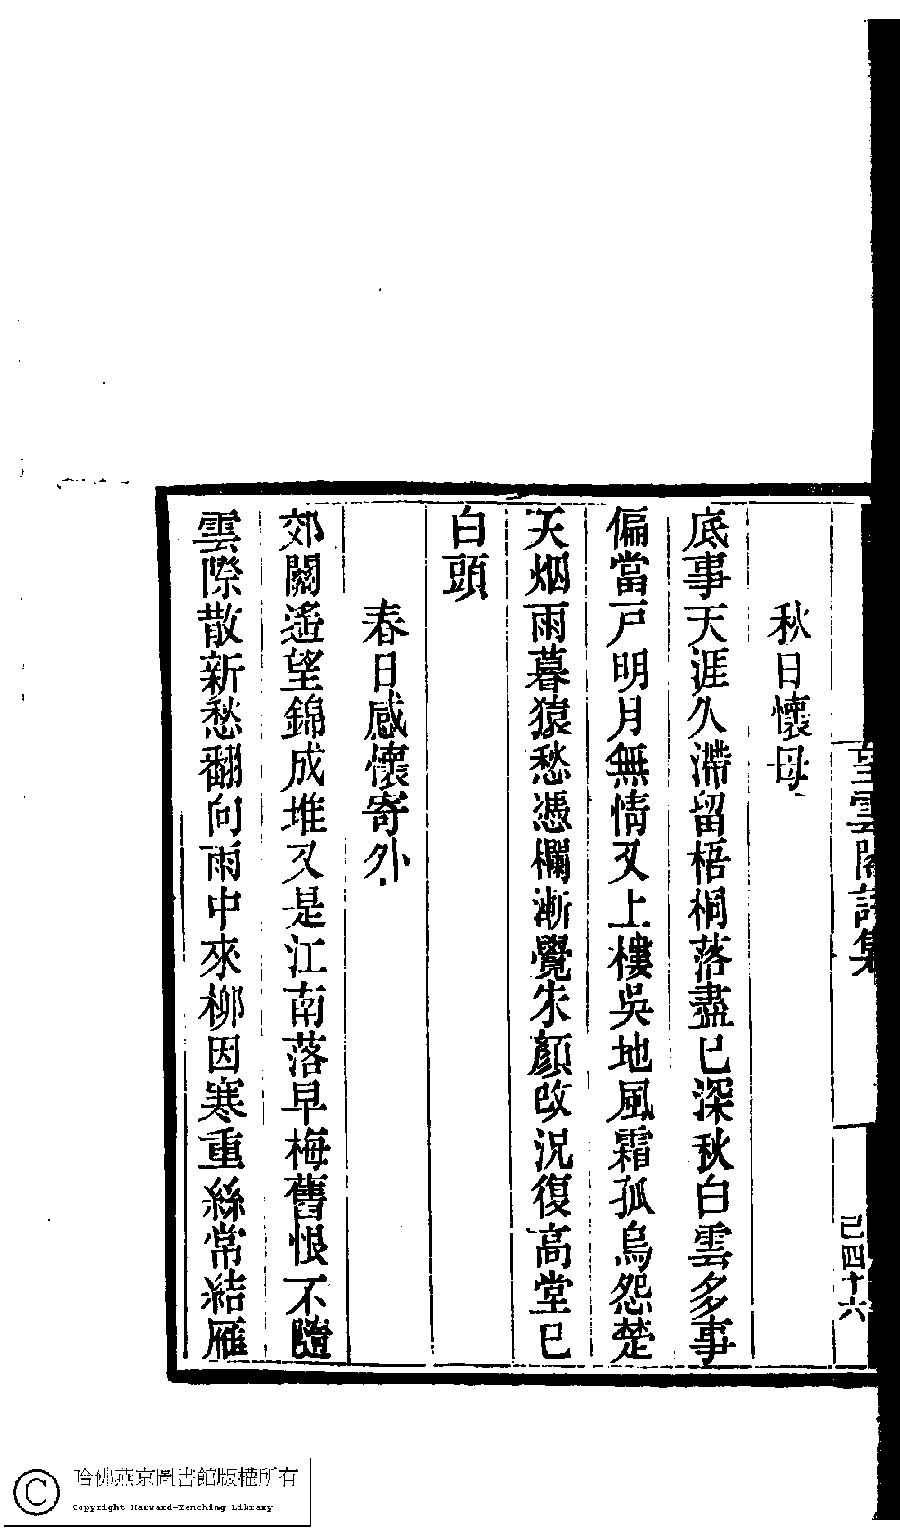 望雲閣詩集
己四十六
秋日懷母
底事天涯久滯留梧桐落盡已深秋白雲多事
偏當戶明月無情又上樓吳地風霜孤烏怨楚
天烟雨暮猿愁憑欄漸覺朱顏改況復高堂已
白頭
春日感懷寄外
郊關遙望錦成堆又是江南落早梅舊恨不隨
雲際散新愁翻向雨中來柳因寒重絲常結雁
哈佛燕京圖書館版權所有
Copyright Harvard-Yenching Library